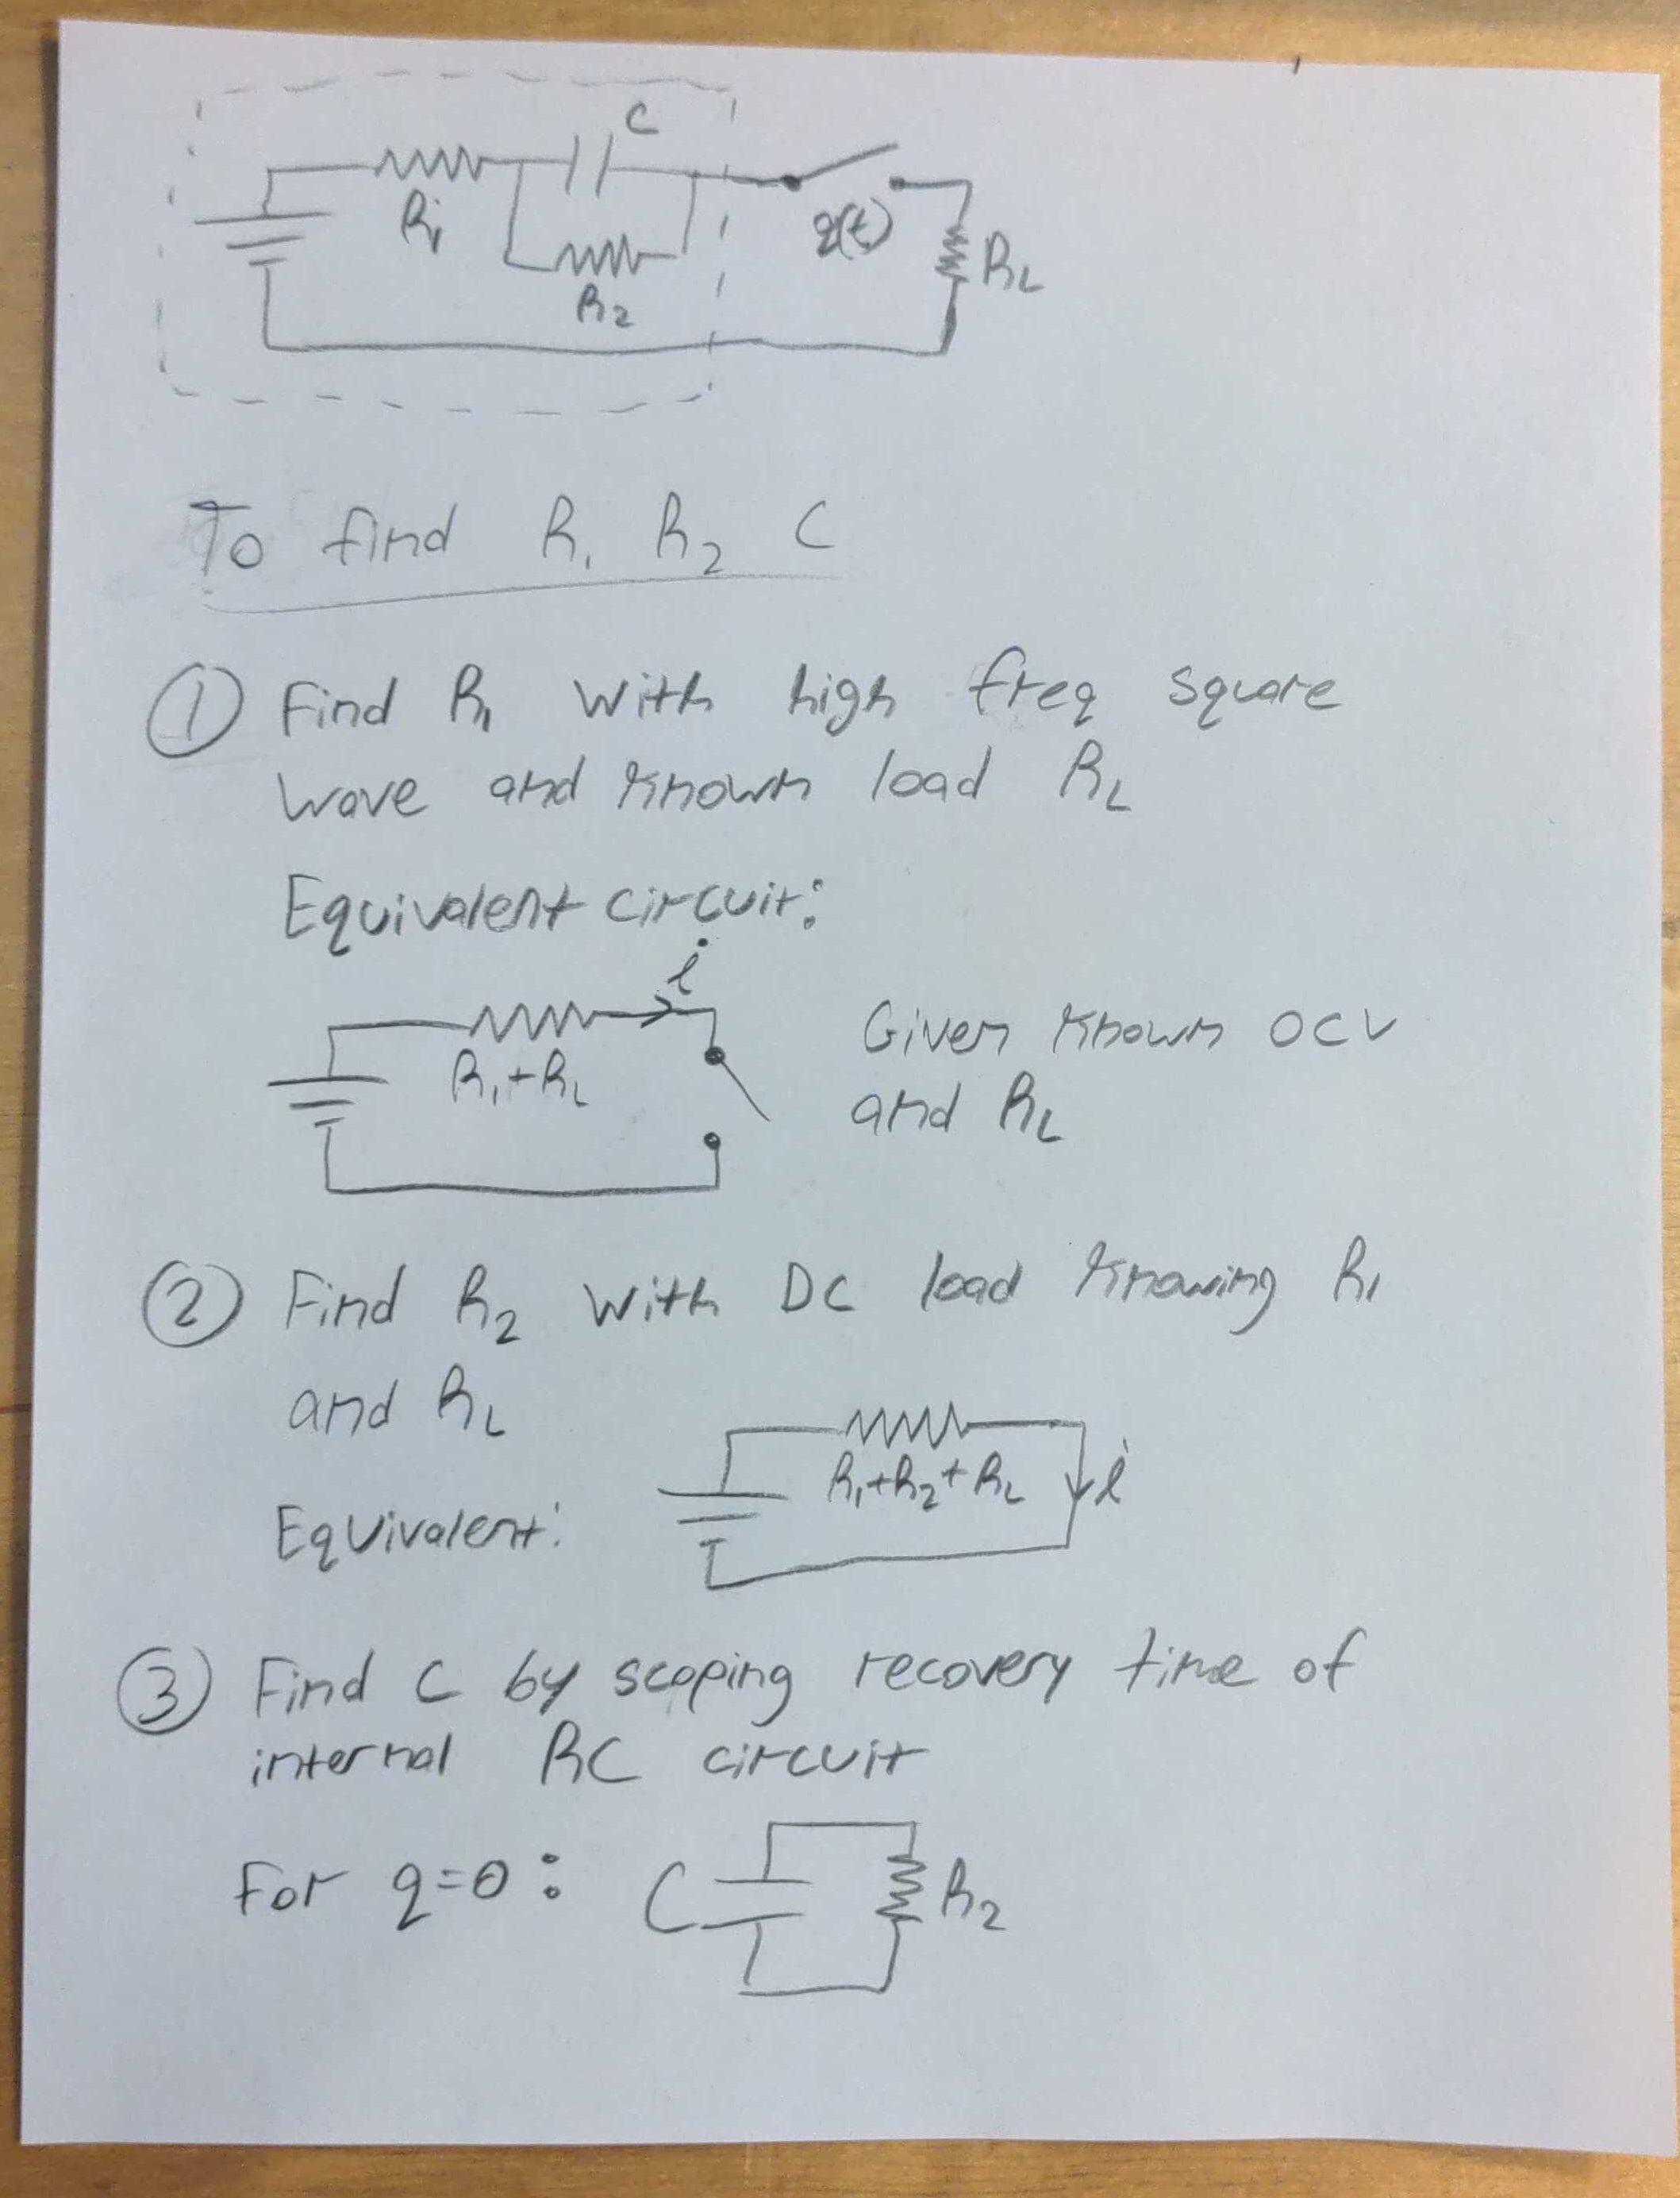 C
R₁
R₂
q(t)
R_L
To find R₁ R₂ C
① Find R₁ with high freq square
wave and known load R_L
Equivalent circuit:
i
R₁+R_L
Given known OCV
and R_L
② Find R₂ with DC load knowing R₁
and R_L
Equivalent:
R₁+R₂+R_L
i
③ Find C by scoping recovery time of
internal RC circuit
For q=0:
C
R₂